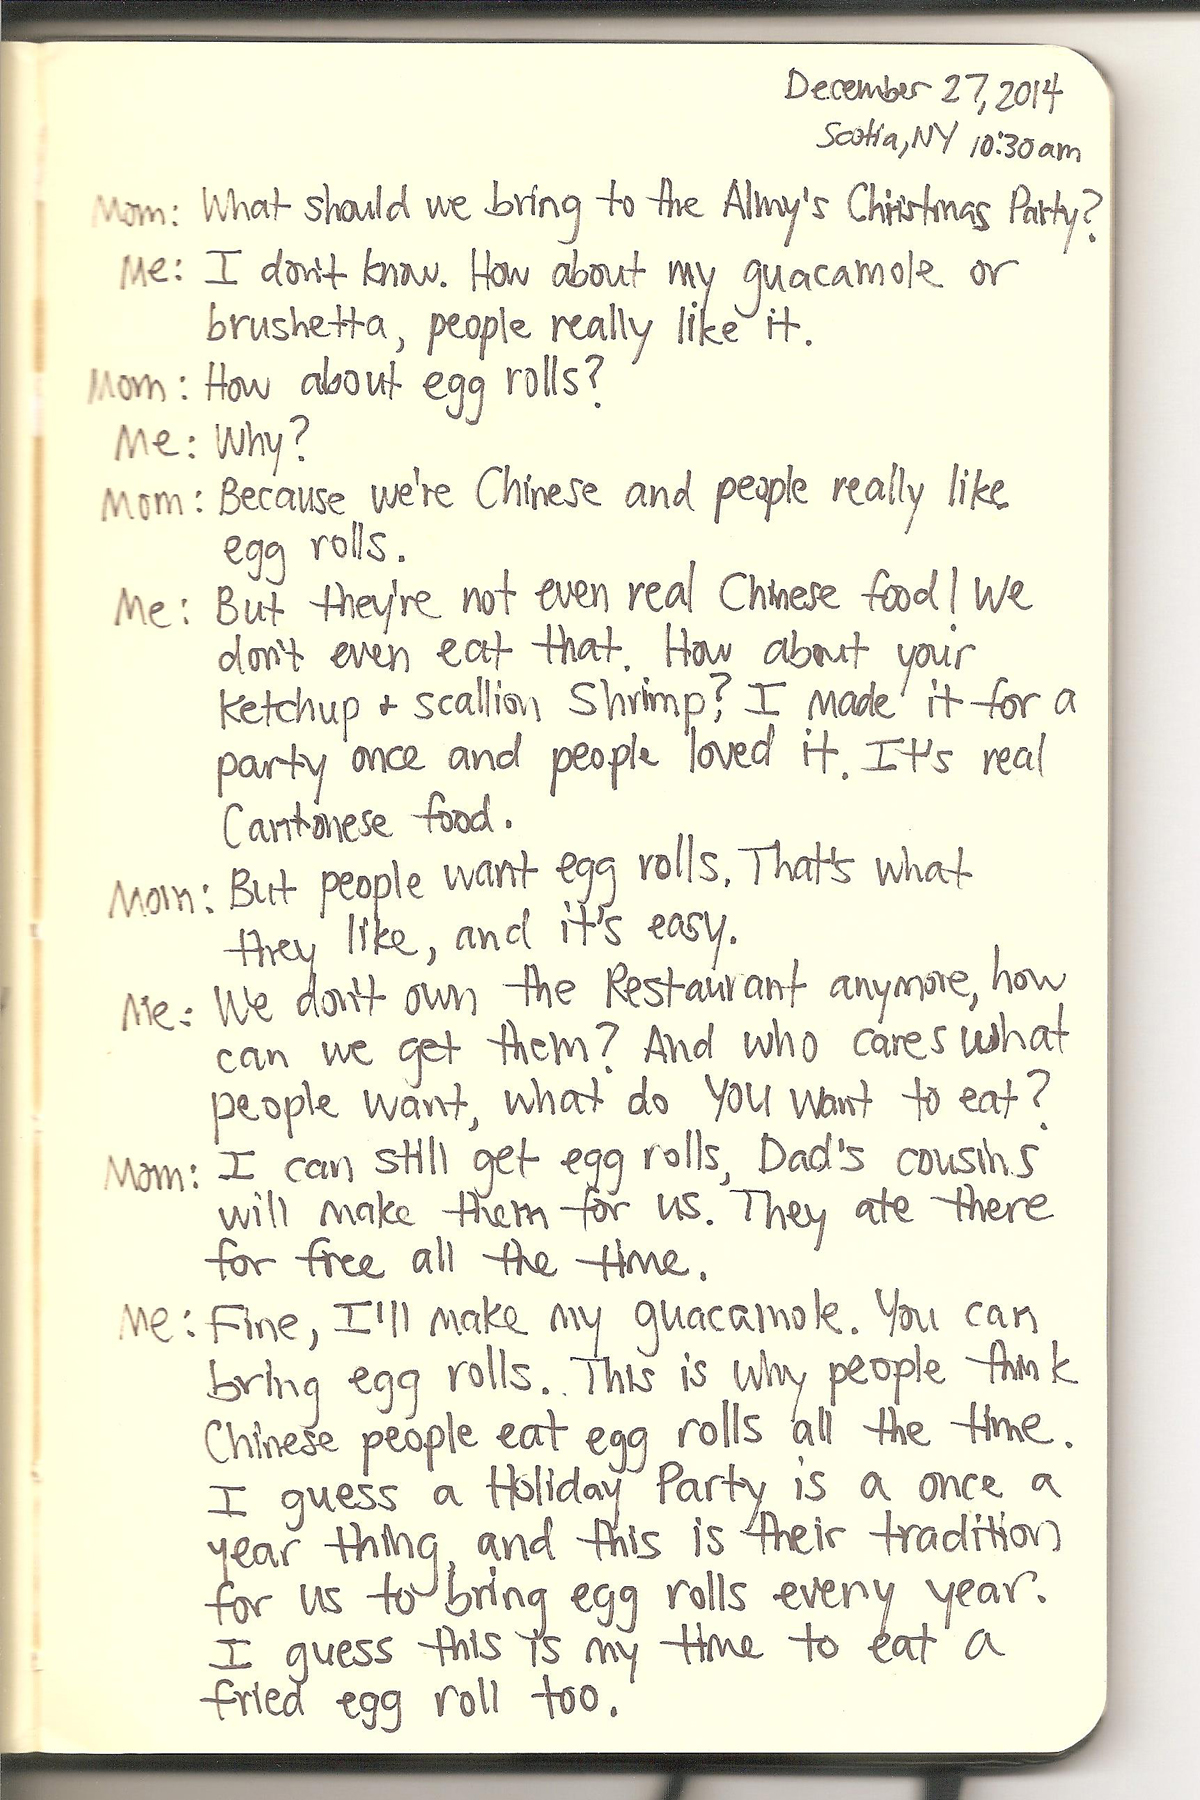 December 27, 2014
Scotia, NY 10:30am
Mom: What should we bring to the Almy's Christmas Party?
Me: I don't know. How about my guacamole or
brushetta, people really like it.
Mom: How about egg rolls?
Me: Why?
Mom: Because we're Chinese and people really like
egg rolls.
Me: But they're not even real Chinese food! We
don't even eat that. How about your
ketchup + scallion Shrimp? I made it for a
party once and people loved it. It's real
Cantonese food.
Mom: But people want egg rolls. That's what
they like, and it's easy.
Me: We don't own the Restaurant anymore, how
can we get them? And who cares what
people want, what do YOU want to eat?
Mom: I can still get egg rolls, Dad's cousins
will make them for us. They ate there
for free all the time.
Me: Fine, I'll make my guacamole. You can
bring egg rolls.. This is why people think
Chinese people eat egg rolls all the time.
I guess a Holiday Party is a once a
year thing, and this is their tradition
for us to bring egg rolls every year.
I guess this is my time to eat a
fried egg roll too.